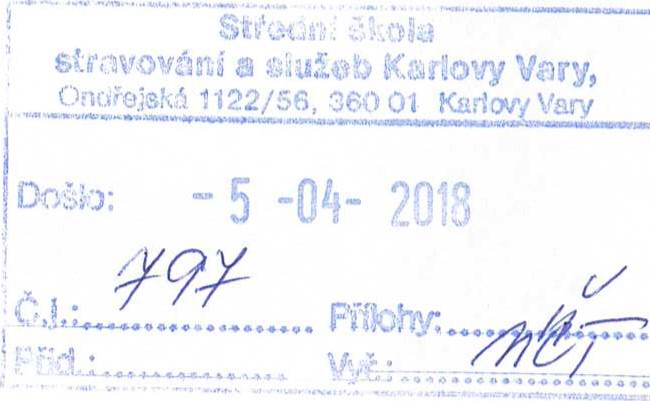 Střední škola
stravování a služeb Karlovy Vary,
Ondřejská 1122/56, 360 01 Karlovy Vary
Došlo: - 5 -04- 2018
797
Č.j.: Přílohy:
Příd.: Vyř.: